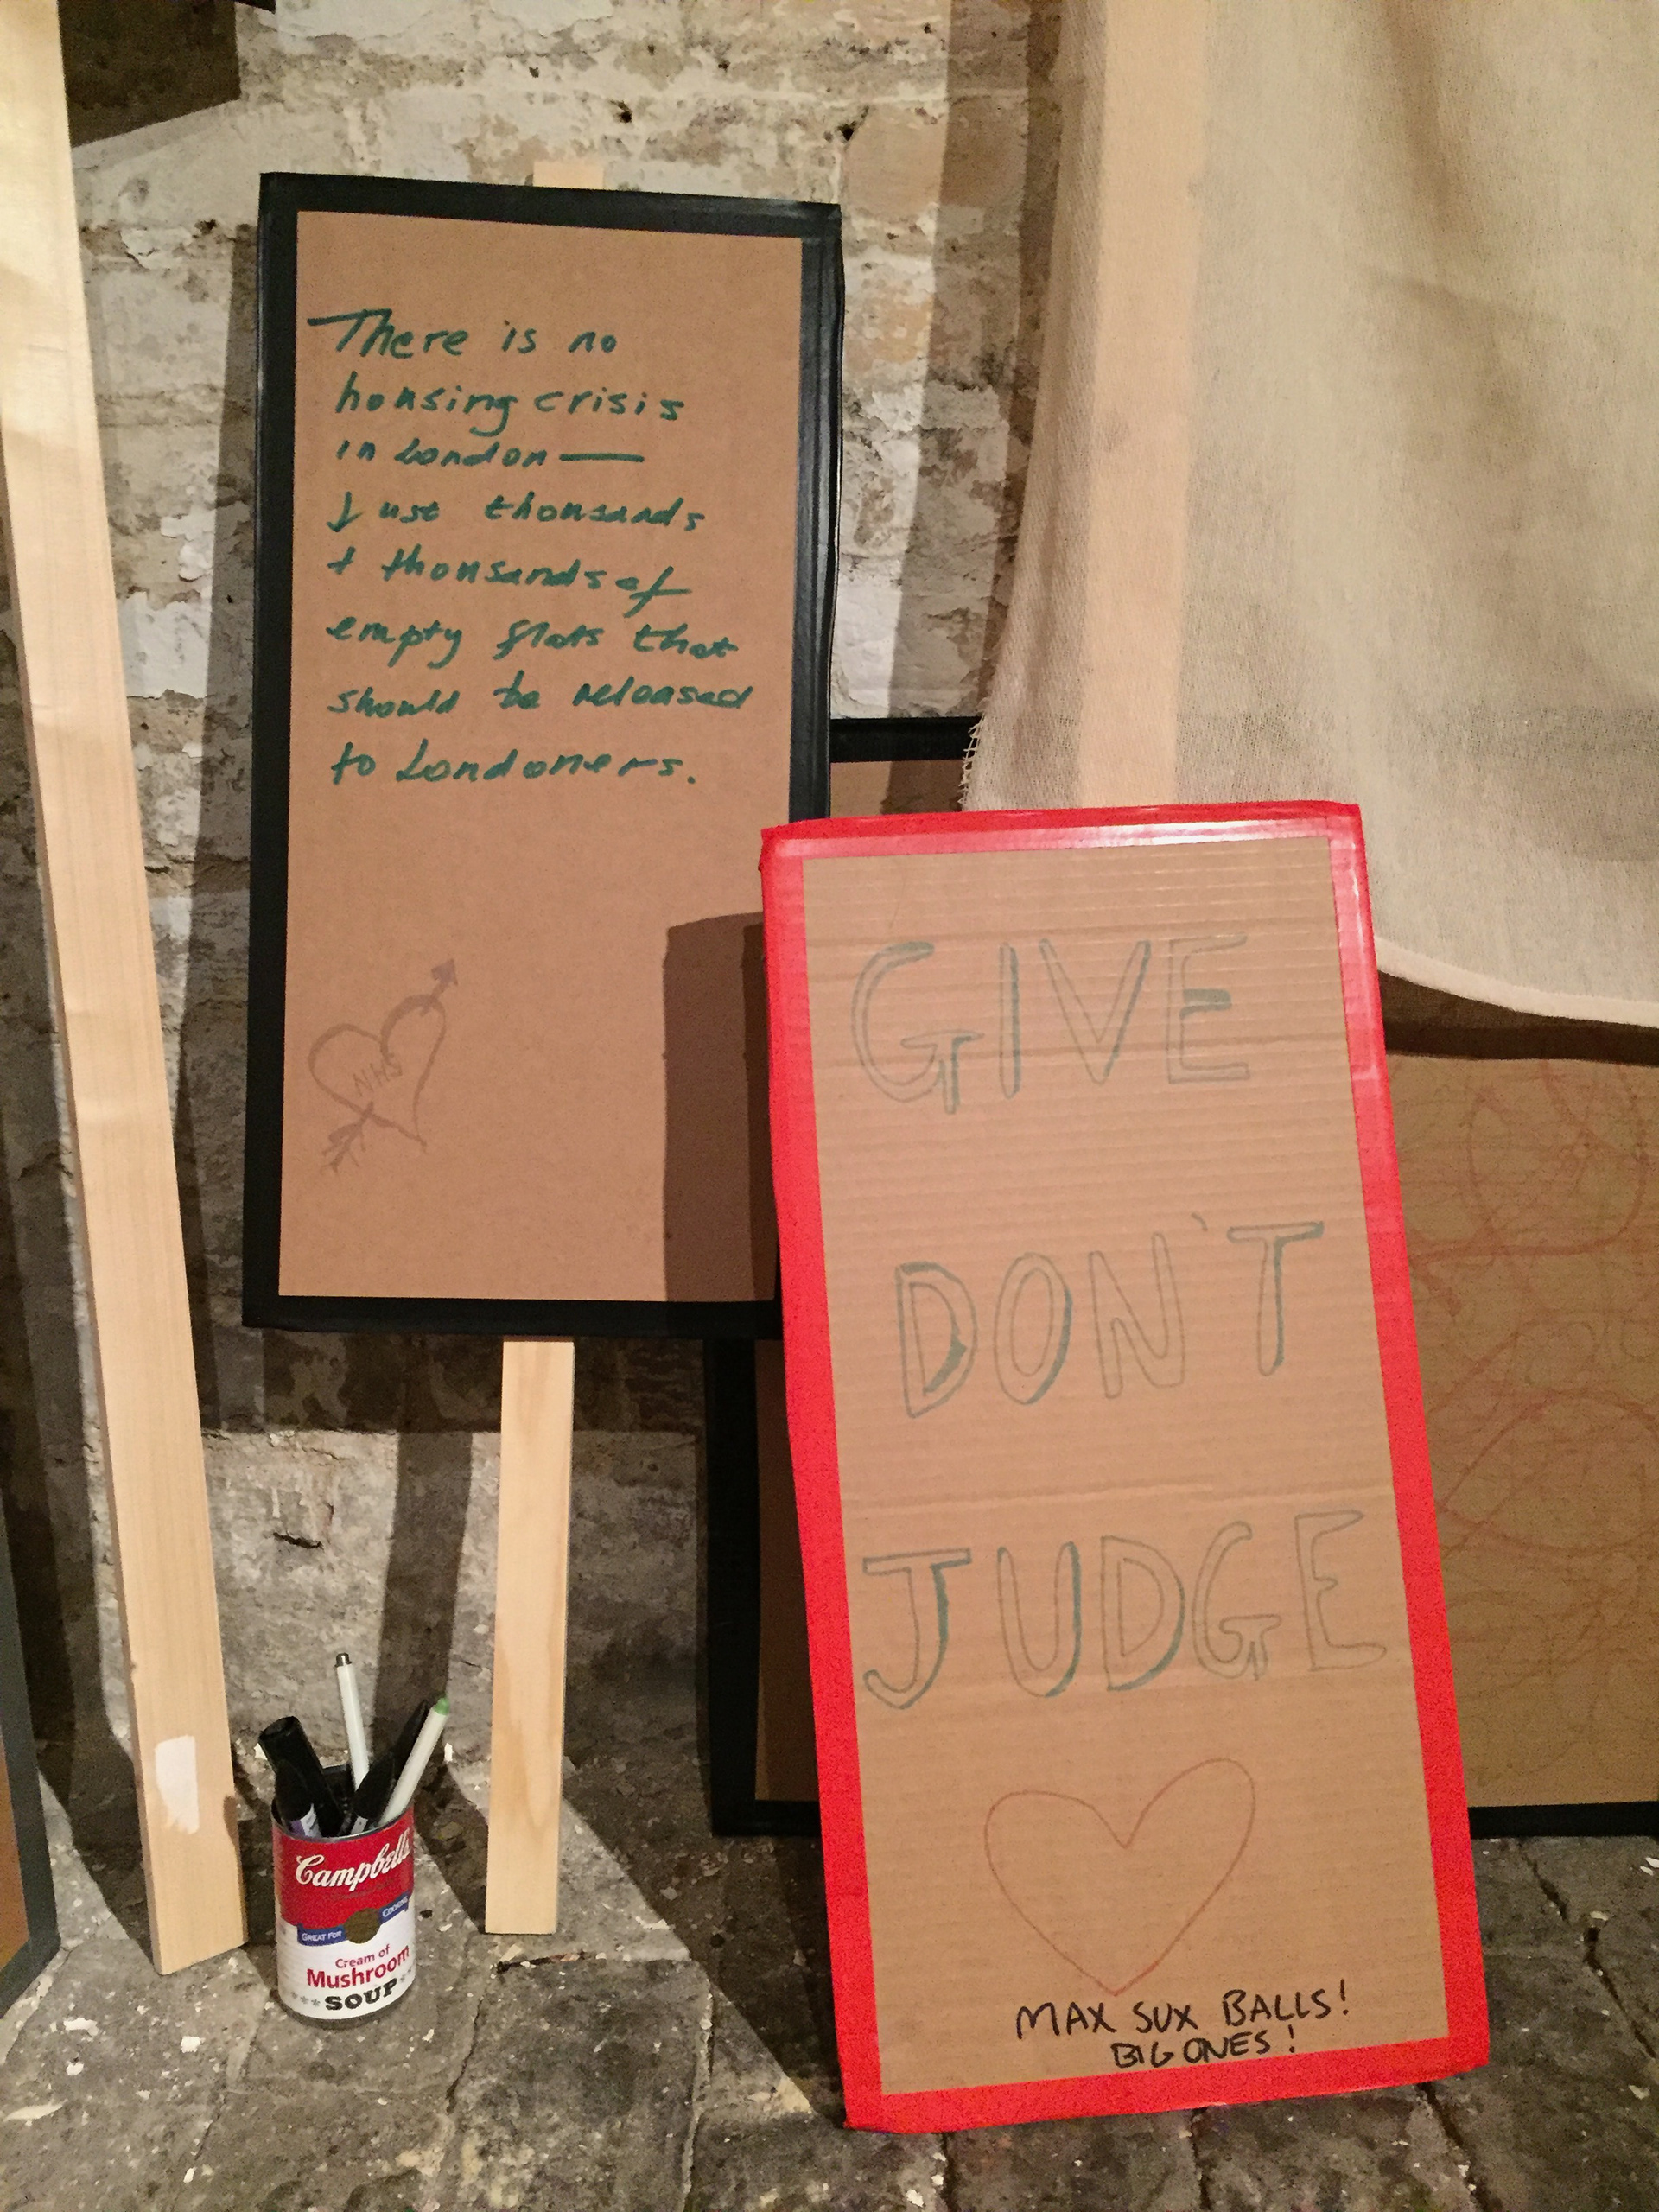 There is no
housing crisis
in London —
Just thousands
+ thousands of
empty flats that
should be released
to Londoners.
NHS
GIVE
DON'T
JUDGE
MAX SUX BALLS!
BIG ONES!
Campbell's
GREAT FOR COOKING
Cream of
Mushroom
SOUP